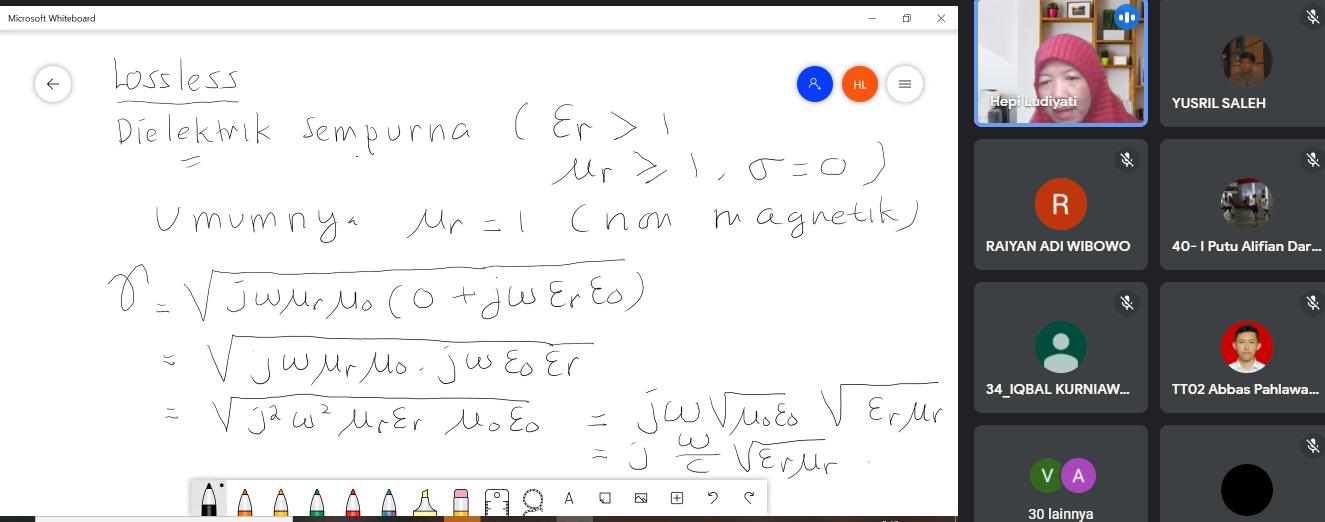 Microsoft Whiteboard
Lossless
Dielektrik sempurna ( εr > 1
μr ⩾ 1, σ = 0 )
Umumnya μr = 1 (non magnetik)
γ = √jωμrμ0 (0 + jωεrε0)
= √jωμrμ0 . jωε0εr
= √j²ω²μrεr μ0ε0 = jω√μ0ε0 √εrμr
= j ω/c √εrμr
HL
A
Hepi Ludiyati
YUSRIL SALEH
R
RAIYAN ADI WIBOWO
40- I Putu Alifian Dar...
34_IQBAL KURNIAW...
TT02 Abbas Pahlawa...
V A
30 lainnya